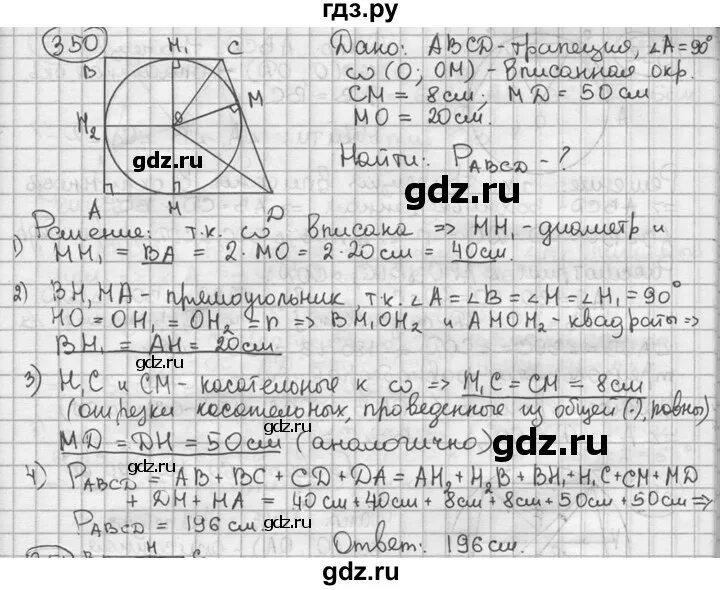 гдз.ру
350
H₁ C
B
M
H₂
O
A H D
gdz.ru
gdz.ru
Дано: ABCD-трапеция, ∠A=90°
ω(O; OM) - вписанная окр.
CM = 8см; MD = 50см
MO = 20см.
Найти: P_ABCD - ?
gdz.ru
Решение: т.к. ω вписана => HH₁ - диаметр и
1) HH₁ = BA = 2·MO = 2·20см = 40см.
2) BH₁HA - прямоугольник, т.к. ∠A=∠B=∠H=∠H₁=90°
HO=OH₁=OH₂=r => BH₁OH₂ и AHOH₂-квадраты =>
BH₁ = AH = 20см
gdz.ru
3) H₁C и CM - касательные к ω => H₁C = CM = 8см
(отрезки касательных, проведенные из общей (·), равны)
MD = DH = 50см (аналогично)
gdz.ru
gdz.ru
4) P_ABCD = AB+BC+CD+DA = AH₂+H₂B+BH₁+H₁C+CM+MD
+DH+HA = 40см+40см+8см+8см+50см+50см =>
P_ABCD = 196см.
Ответ: 196см.
gdz.ru
gdz.ru
B H C
гдз.ру